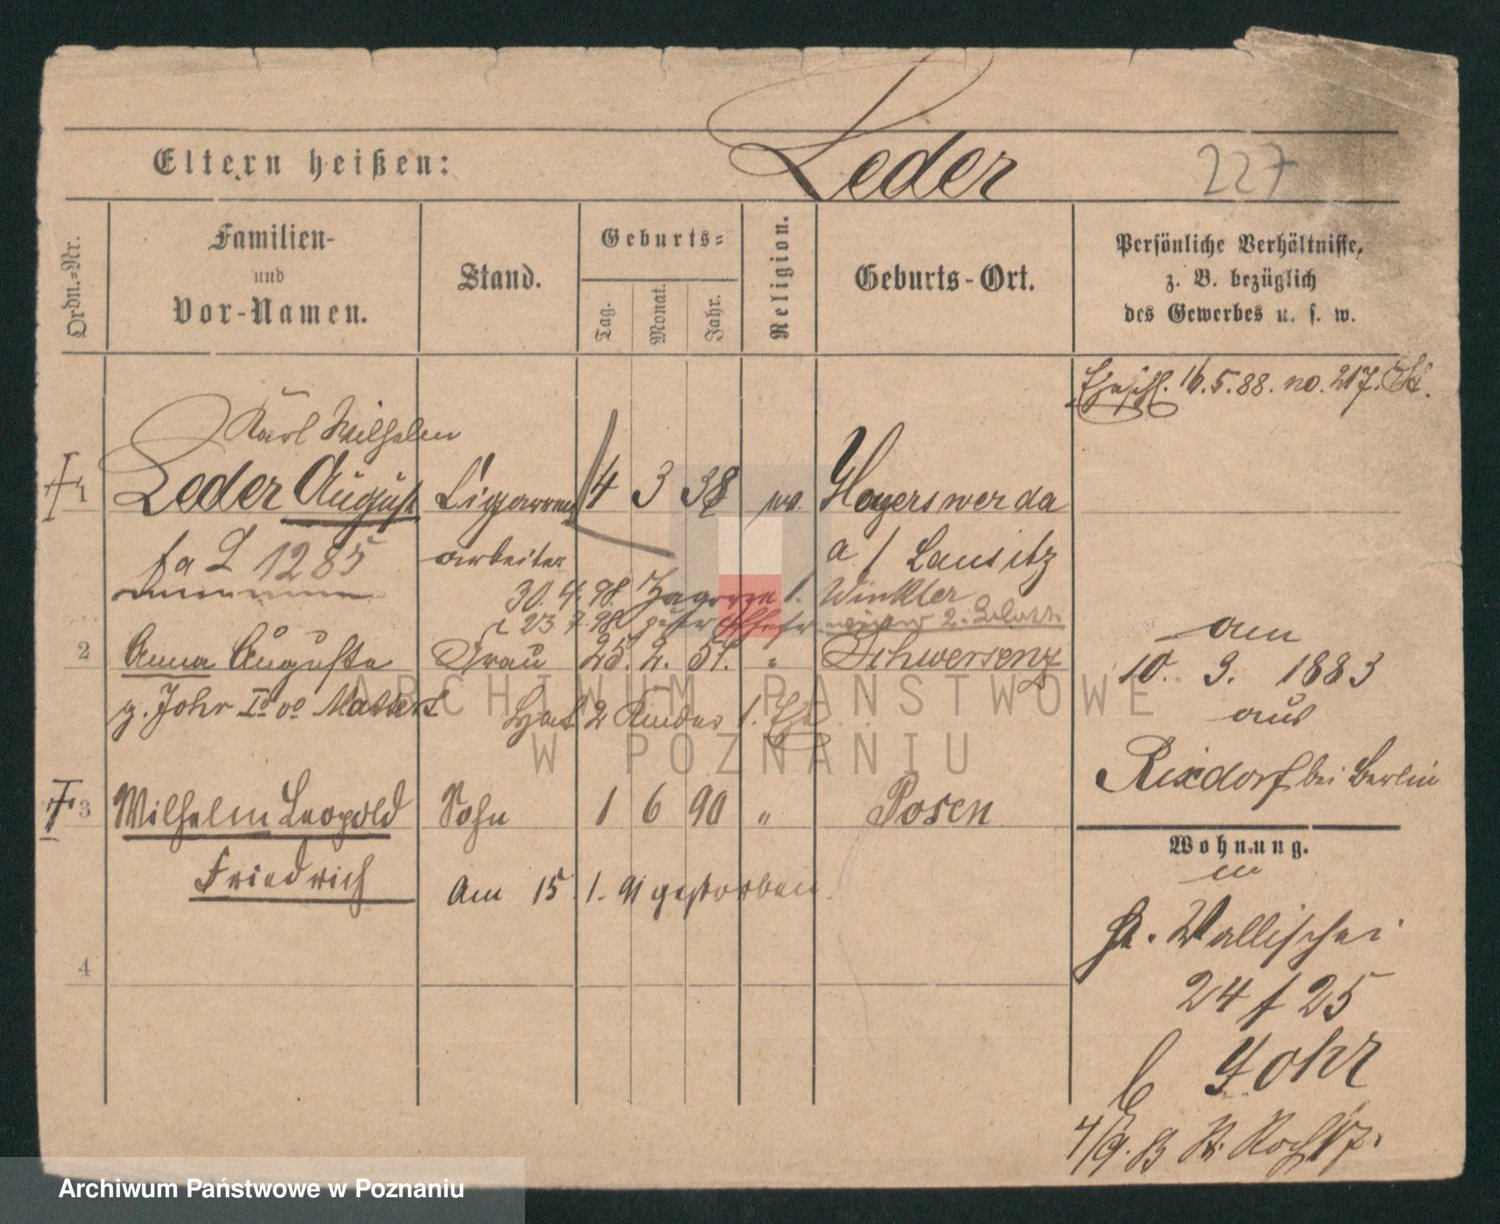 Eltern heißen:
Leder
227
Ordn.-Nr.
Familien-
und
Vor-Namen.
Stand.
Geburts-
Tag.
Monat.
Jahr.
Religion.
Geburts-Ort.
Persönliche Verhältnisse,
z. B. bezüglich
des Gewerbes u. s. w.
16.5.88. no. 217.
Karl Wilhelm
1 Leder August Cigarren 4 3 38 Hoyerswerda
1285 arbeiter a/ Lausitz
30. 4. 98. Winkler
23 7 98
2 Anna Auguste Frau 25. 2. 51. " Schwersenz
g. Johr
Hat 2 Kinder 1. Ehe
am
10. 3. 1883
aus
Rixdorf bei Berlin
3 Wilhelm Leopold Sohn 1 6 90 " Posen
Friedrich
Am 15. 1. 91 gestorben.
Wohnung.
in
Wallischei
24/25
b Johr
4/9. B
4
ARCHIWUM PAŃSTWOWE
W POZNANIU
Archiwum Państwowe w Poznaniu